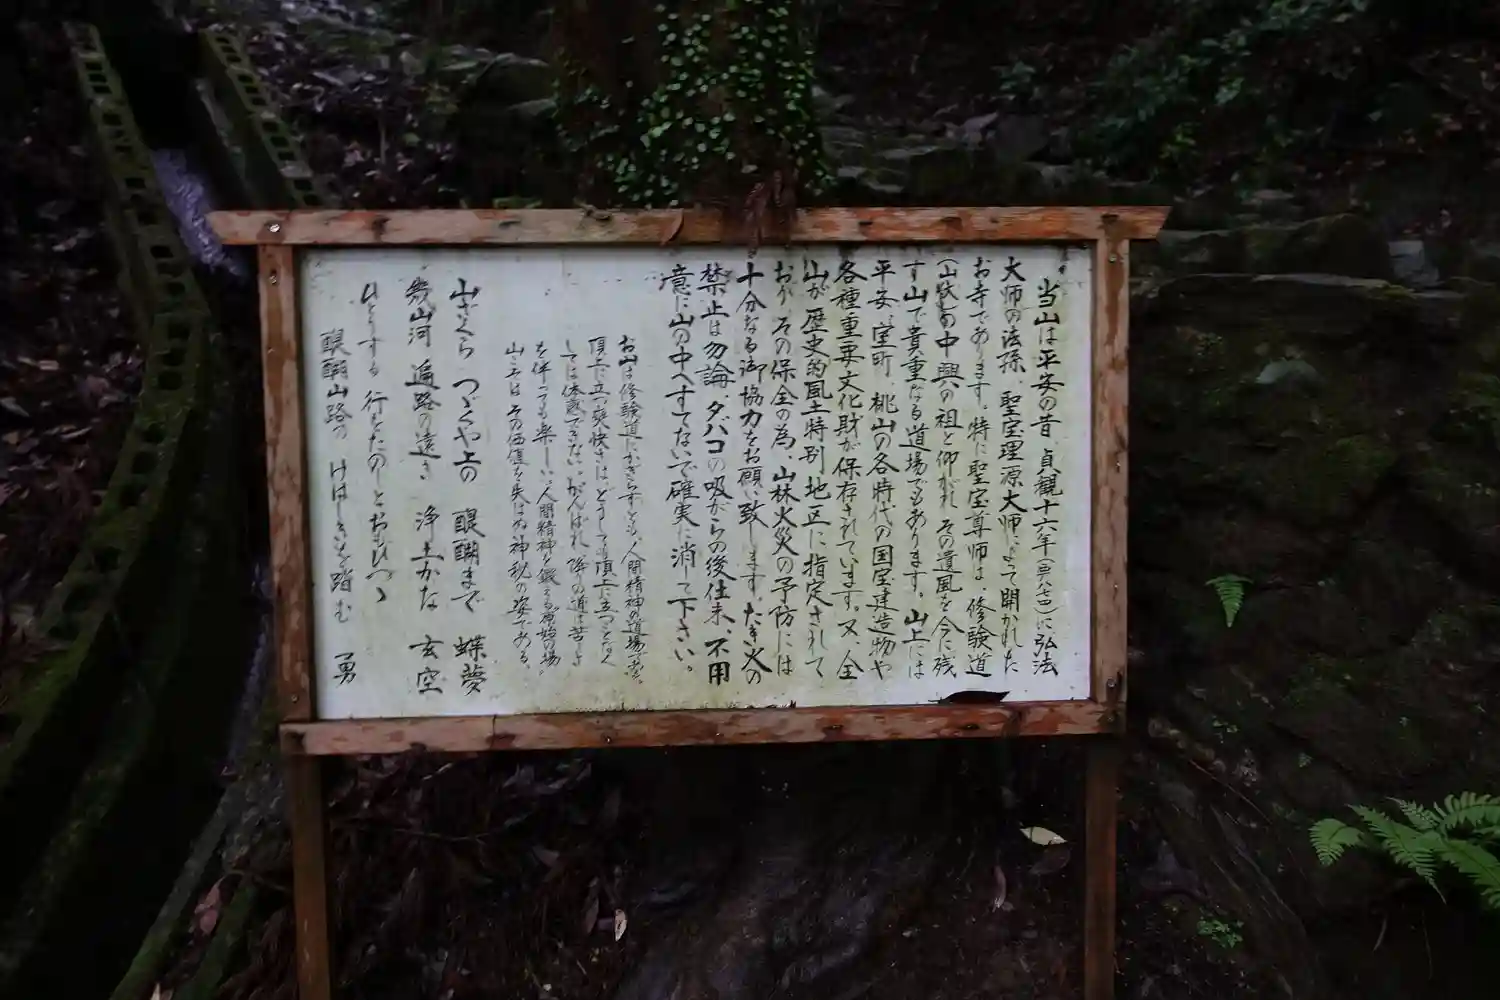 当山は平安の昔、貞観十六年(西八七四)に弘法
大師の法孫、聖宝理源大師によって開かれた
お寺であります。特に聖宝尊師は、修験道
(山伏)の中興の祖と仰がれ その遺風を今に残
す山で貴重なる道場でもあります。山上には
平安、室町、桃山の各時代の国宝建造物や
各種重要文化財が保存されています。又、全
山が歴史的風土特別地区に指定されて
おり、その保全の為、山林火災の予防には
十分なる御協力をお願い致します。たき火の
禁止は勿論、タバコの吸がらの後仕末、不用
意に山の中へすてないで確実に消して下さい。
お山は修験道にかぎらずとも、人間精神の道場である。
頂上に立つ爽快さは、どうしても頂上に立つことなく
しては体感できない がんばれ、降りの道は苦しさ
を伴っても楽しい、人間精神を鍛える原始の場、
山こそは その価値を失はぬ神秘の姿である。
山ざくら つづくや上の 醍醐まで 蝶夢
幾山河 遍路の遠き 浄土かな 玄空
ひとりする 行をたのしとおもひつゝ
醍醐山路の けはしきを踏む 勇